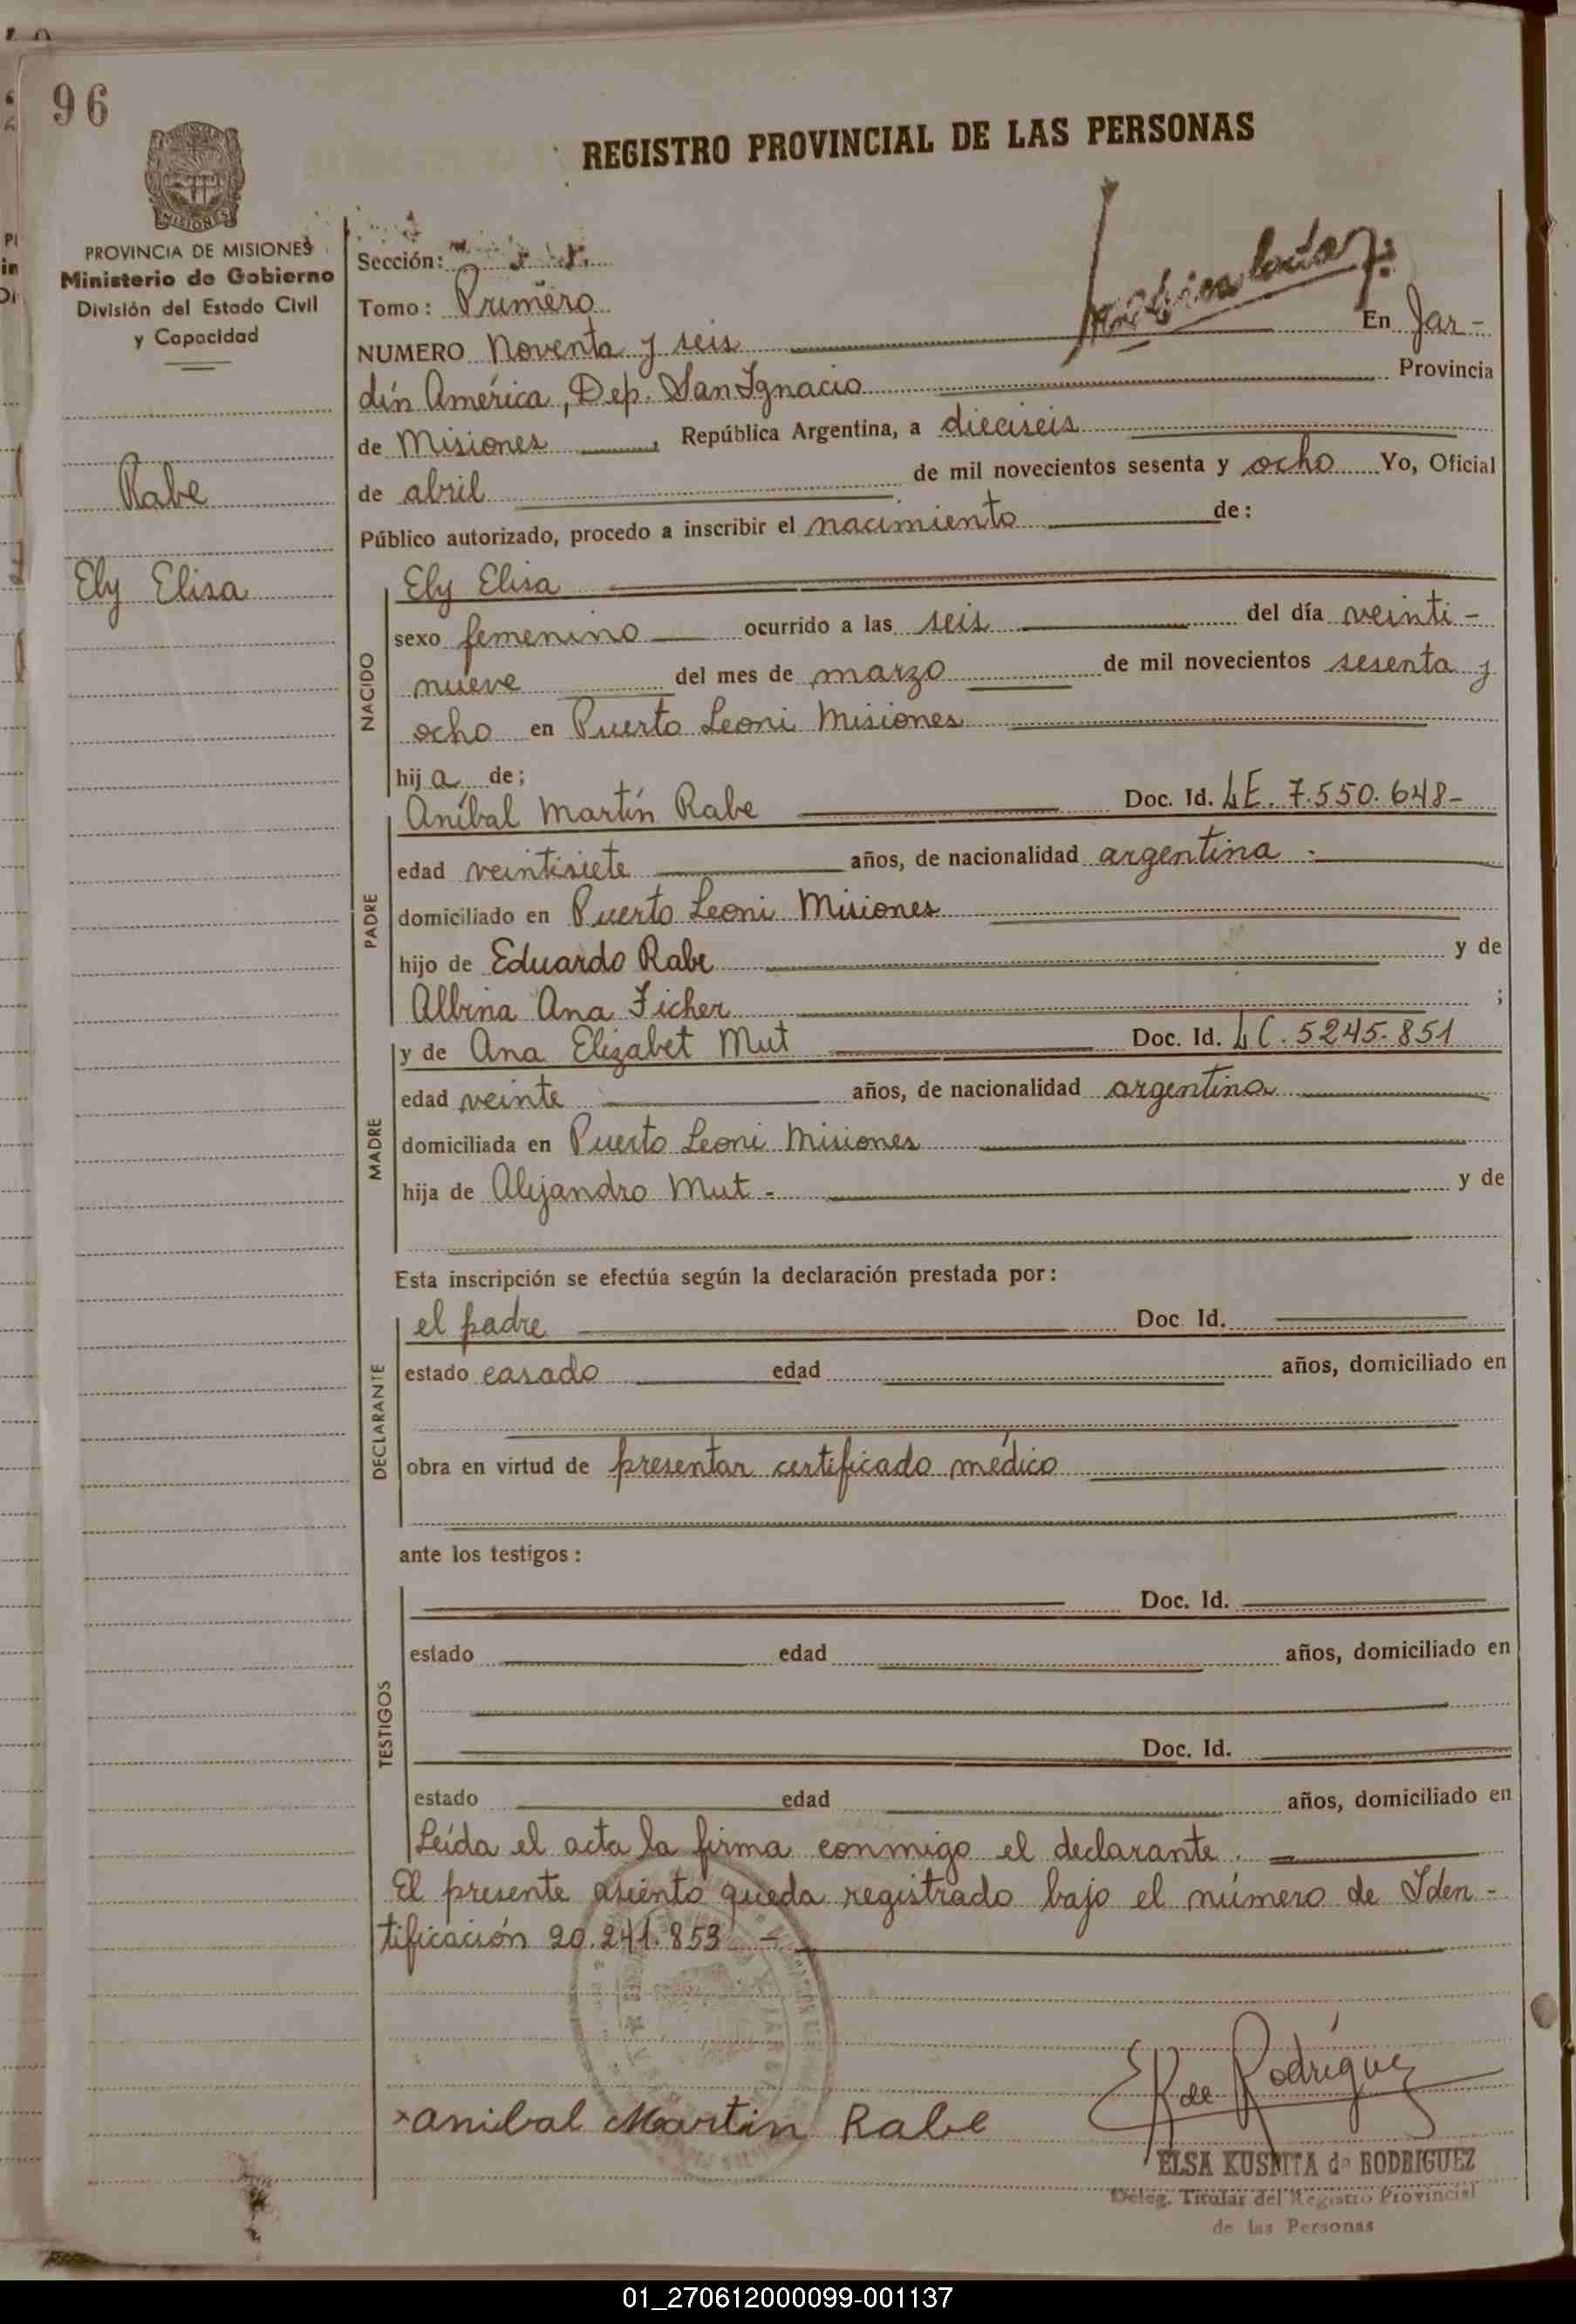 96
REGISTRO PROVINCIAL DE LAS PERSONAS
MISIONES
PROVINCIA DE MISIONES
Ministerio de Gobierno
División del Estado Civil
y Capacidad
Rabe
Ely Elisa
Sección:
Tomo: Primero
NUMERO Noventa y seis En Jar-
dín América, Dep. San Ignacio Provincia
de Misiones, República Argentina, a dieciseis
de abril de mil novecientos sesenta y ocho Yo, Oficial
Público autorizado, procedo a inscribir el nacimiento de:
NACIDO
Ely Elisa
sexo femenino ocurrido a las seis del día veinti-
nueve del mes de marzo de mil novecientos sesenta y
ocho en Puerto Leoni Misiones
hija de;
PADRE
Aníbal Martín Rabe Doc. Id. LE. 7.550.648-
edad veintisiete años, de nacionalidad argentina -
domiciliado en Puerto Leoni Misiones
hijo de Eduardo Rabe y de
Albina Ana Ficher ;
MADRE
y de Ana Elizabet Mut Doc. Id. LC. 5245.851
edad veinte años, de nacionalidad argentina
domiciliada en Puerto Leoni Misiones
hija de Alejandro Mut - y de
Esta inscripción se efectúa según la declaración prestada por:
DECLARANTE
el padre Doc. Id.
estado casado edad años, domiciliado en
obra en virtud de presentar certificado médico
ante los testigos:
TESTIGOS
Doc. Id.
estado edad años, domiciliado en
Doc. Id.
estado edad años, domiciliado en
Leída el acta la firma conmigo el declarante.
El presente asiento queda registrado bajo el número de Iden-
tificación 20.241.853 -
x anibal Martin Rabe
E K de Rodríguez
ELSA KUSMITA de RODRIGUEZ
Deleg. Titular del Registro Provincial
de las Personas
01_270612000099-001137